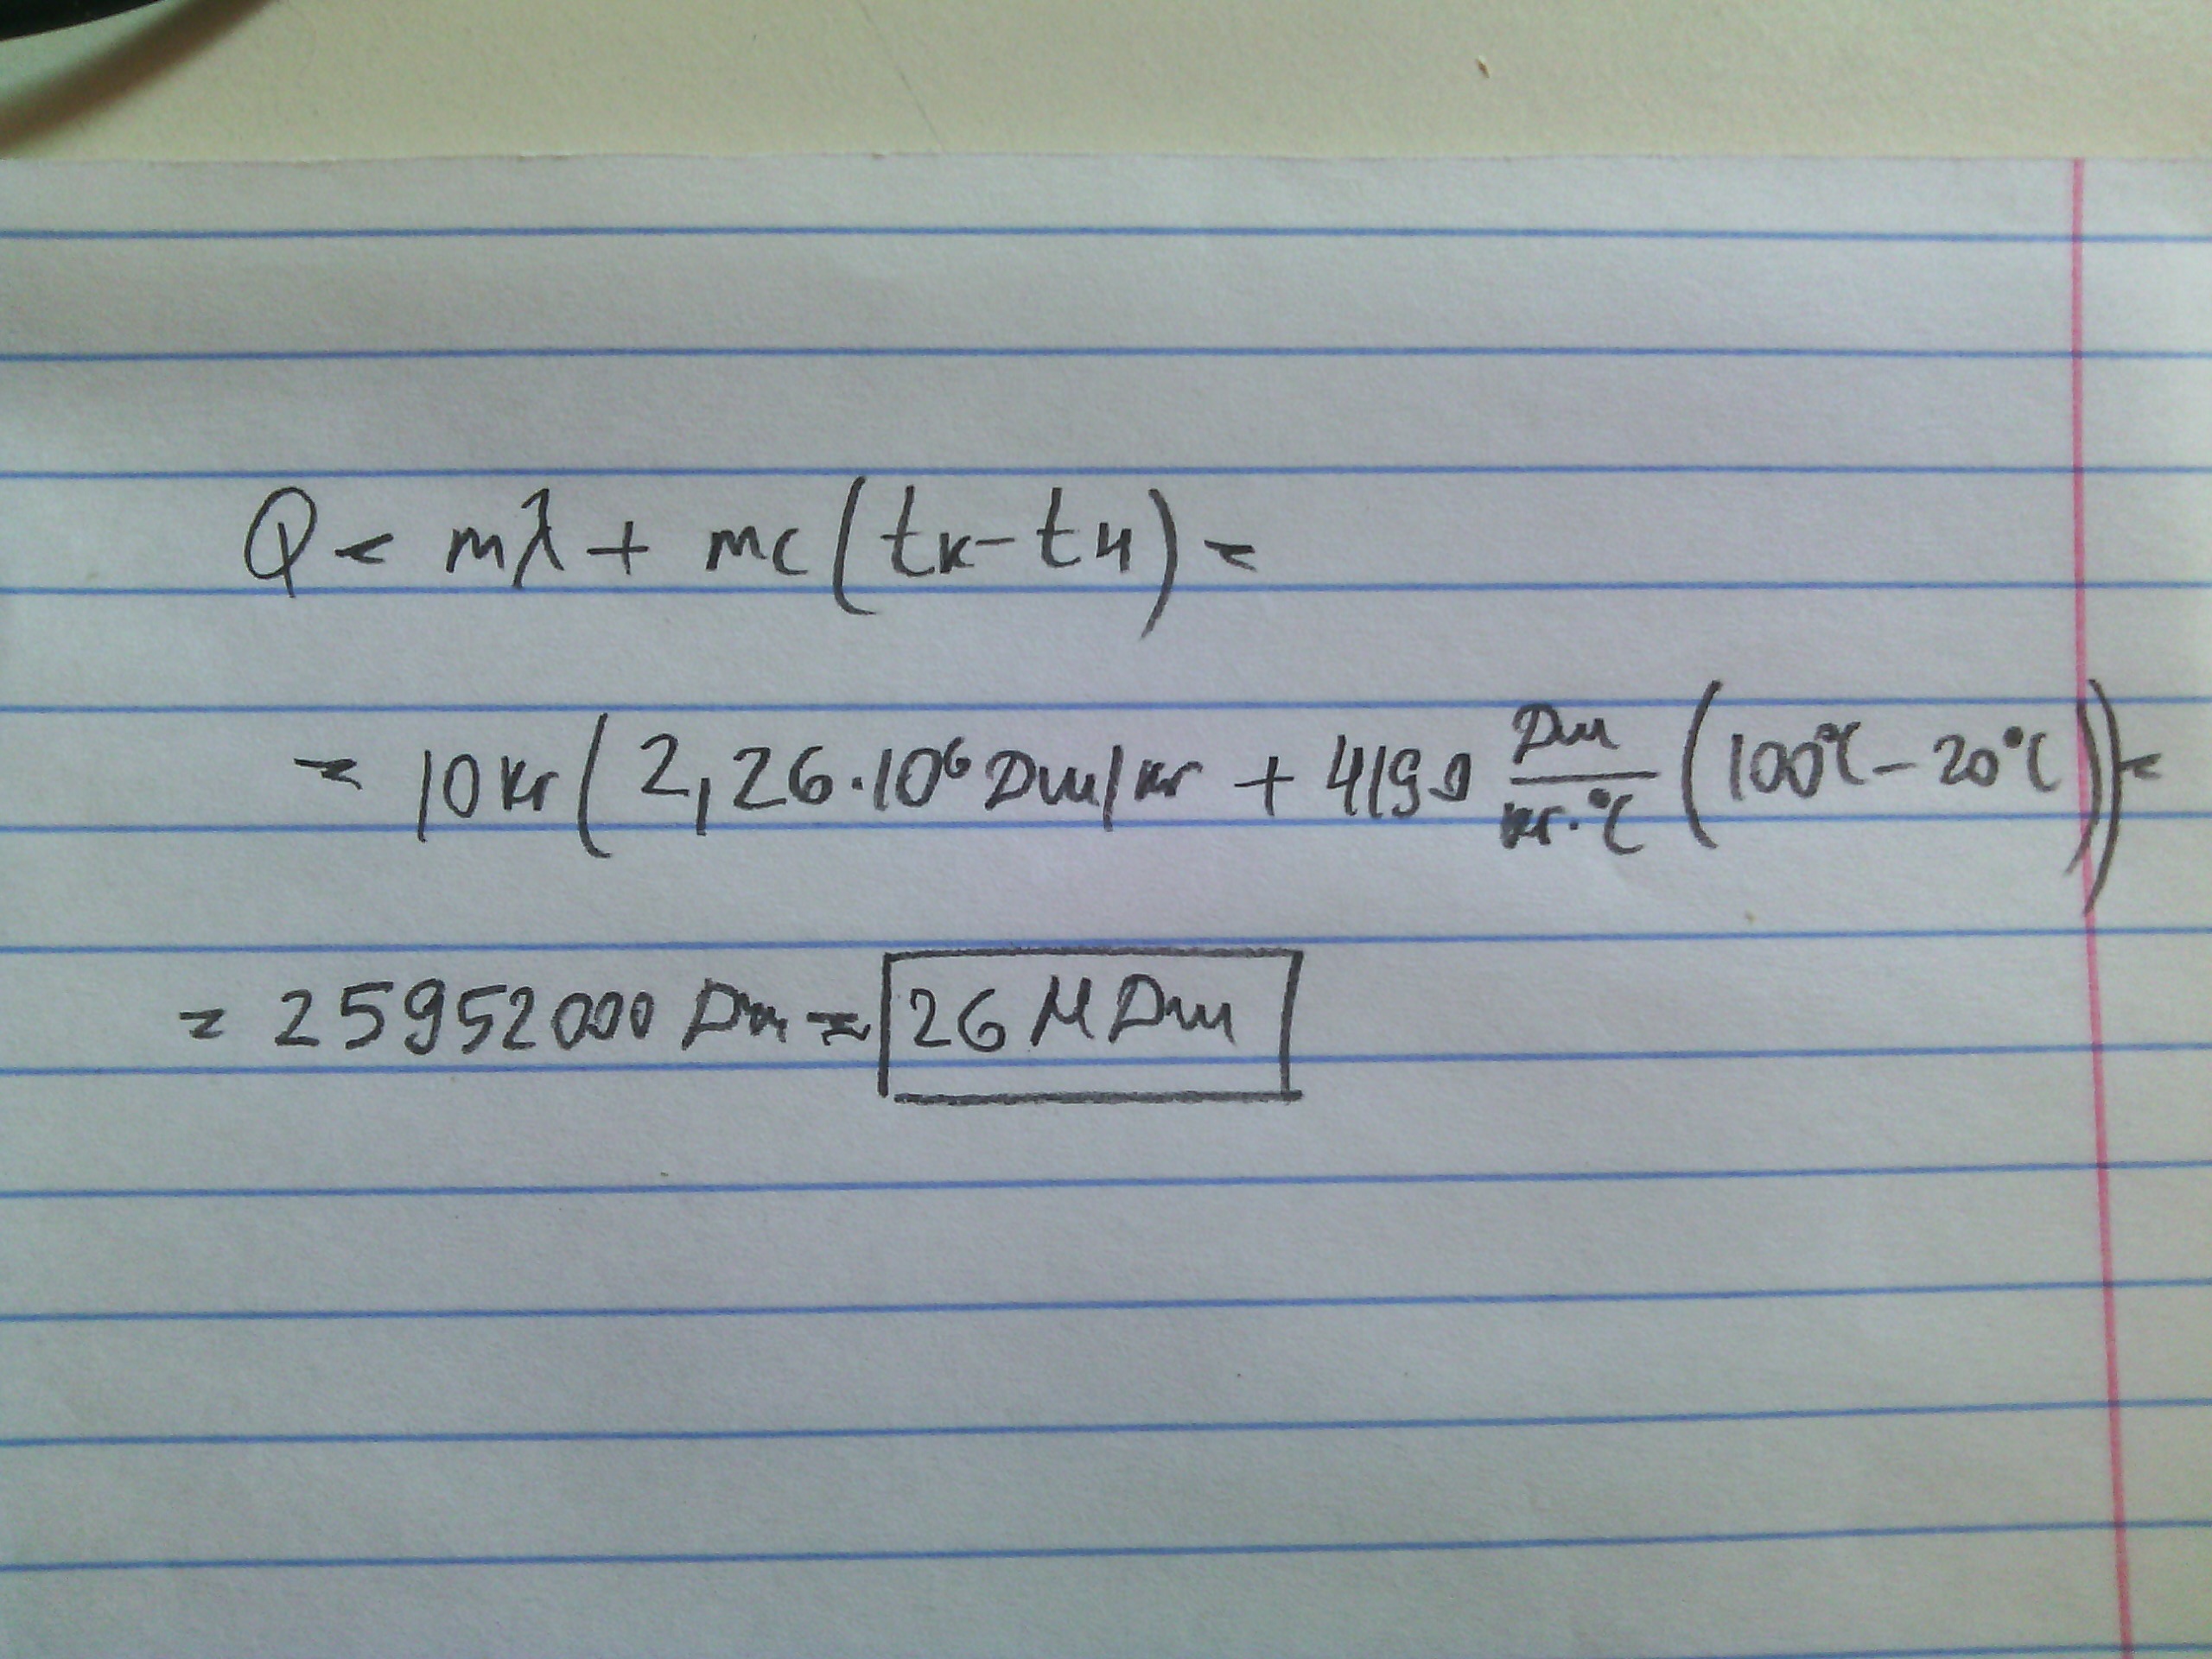 Q = mλ + mc(tк - tн) =
= 10 кг(2,26·10⁶ Дж/кг + 4190 Дж/кг·°C (100°C - 20°C)) =
= 25952000 Дж ≈ 26 МДж